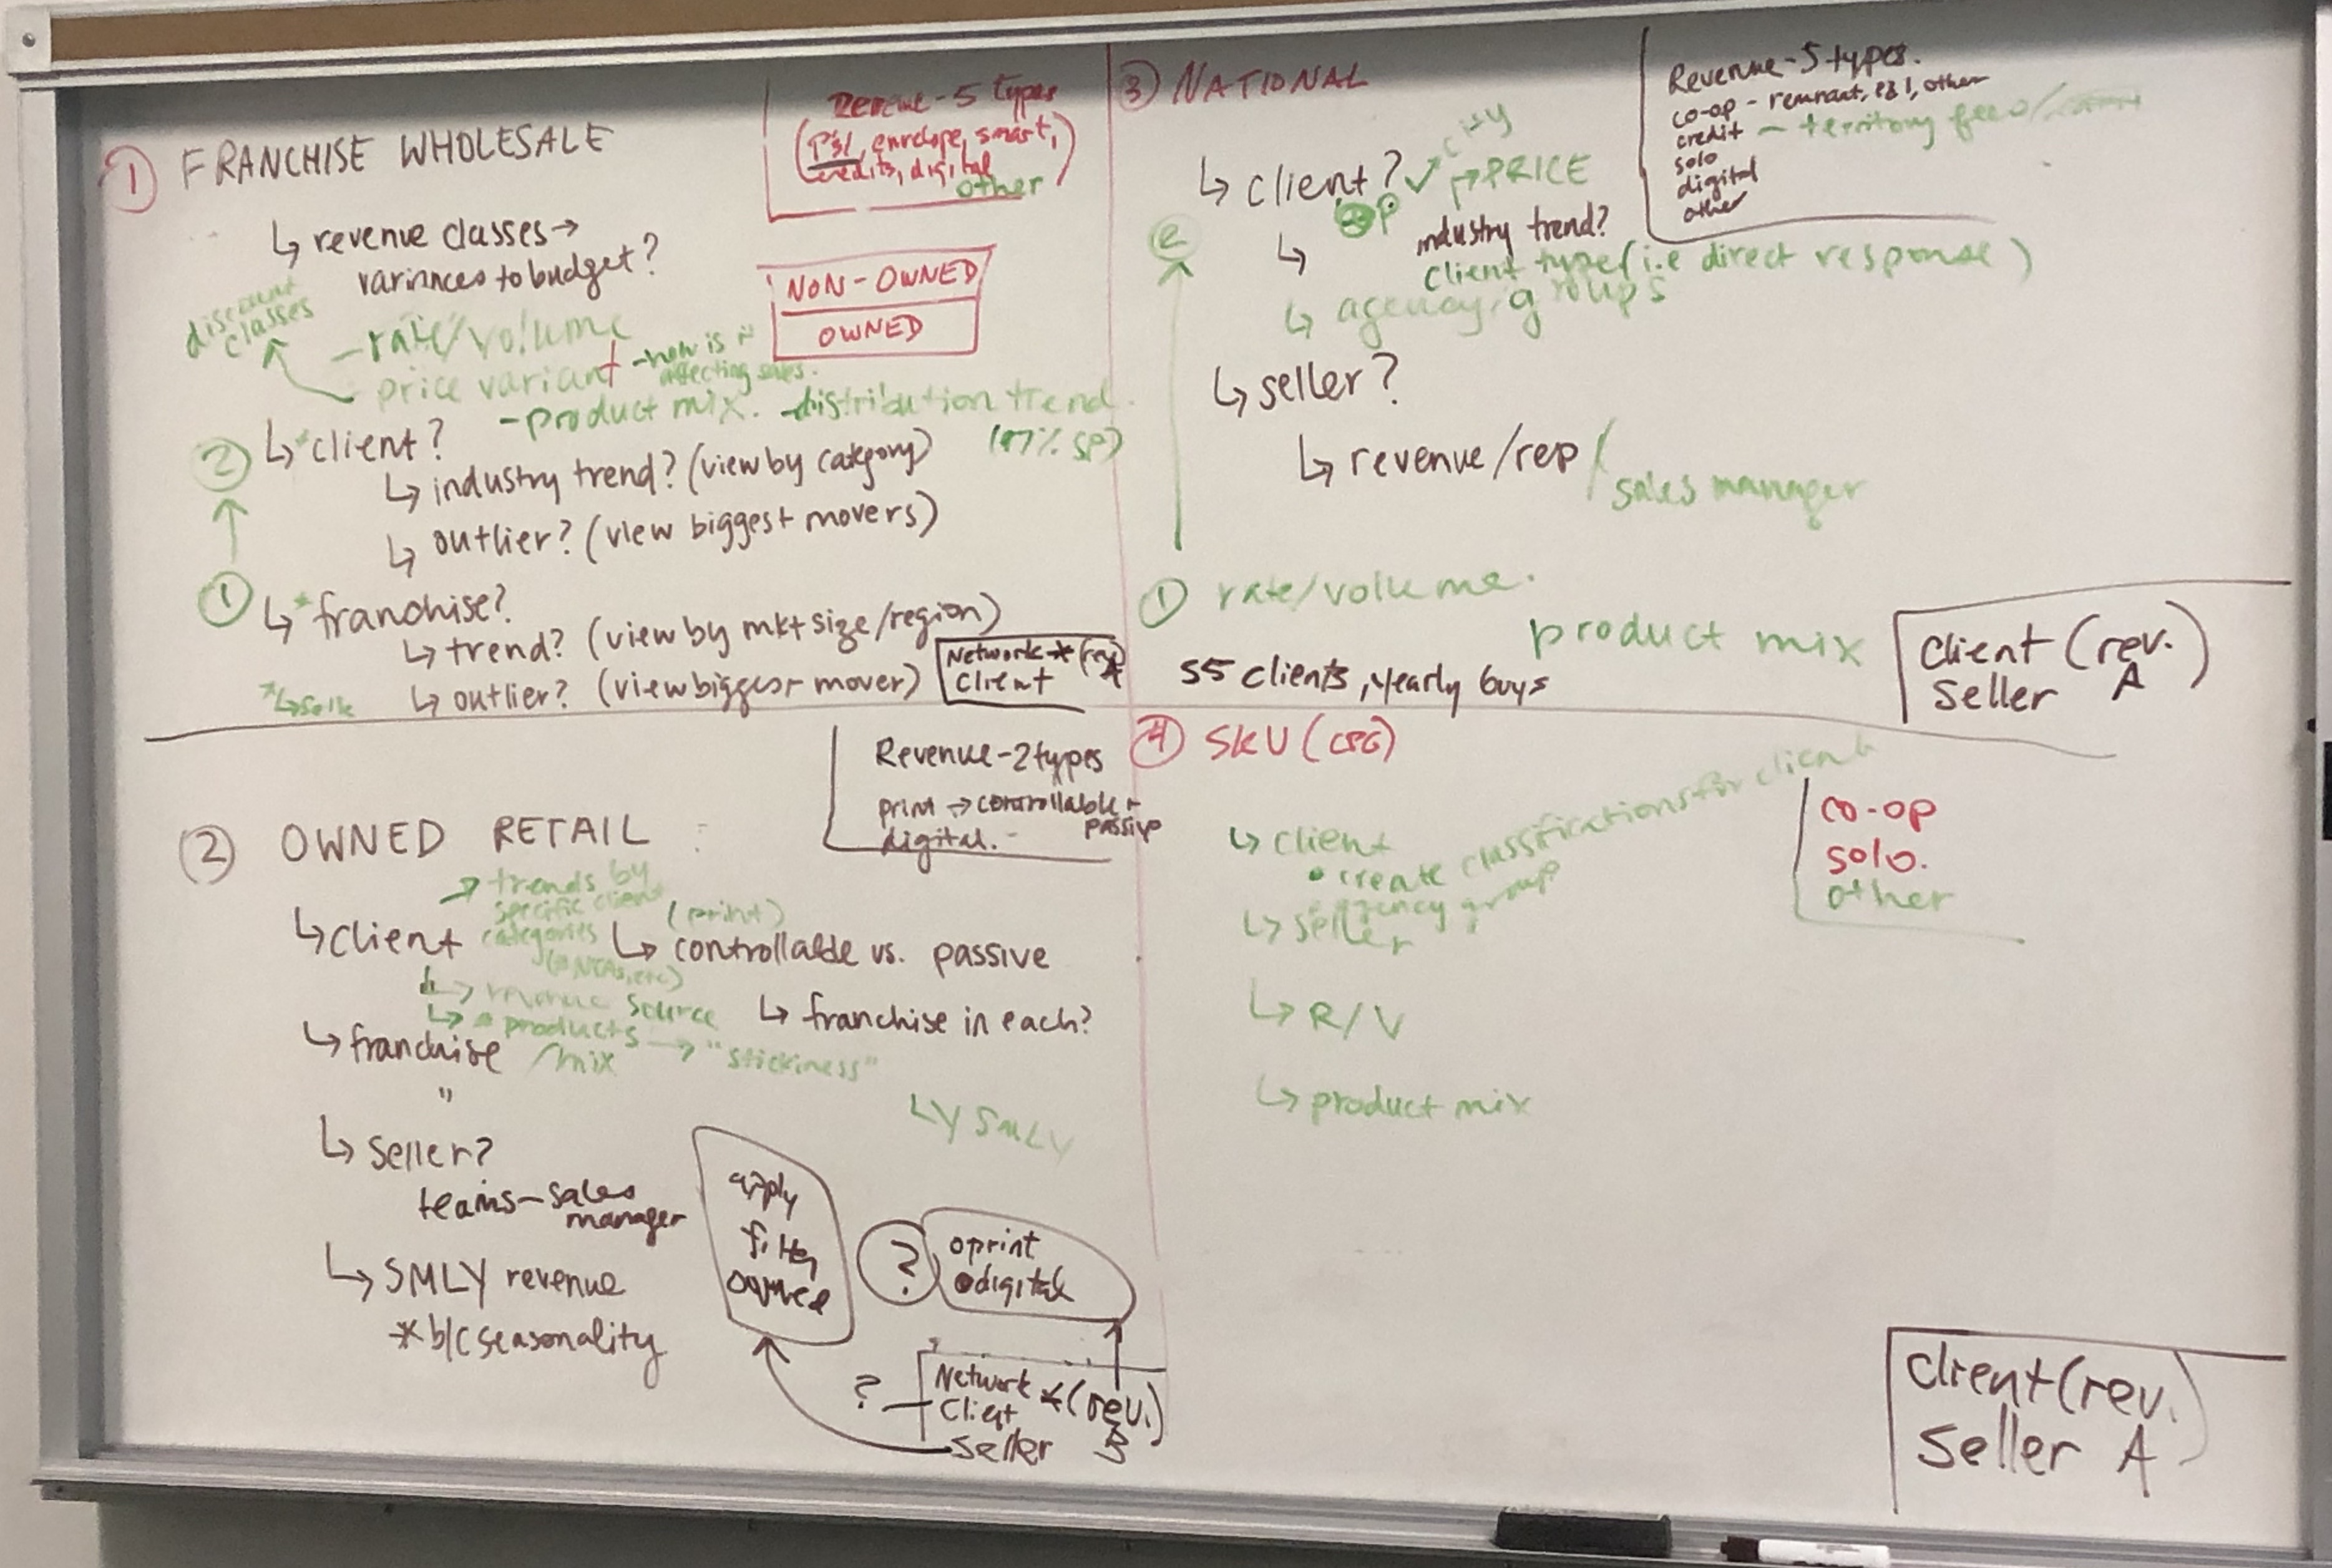 ① FRANCHISE WHOLESALE
Revenue - 5 types
(P&I, envelope, smart,
credits, digital)
other
↳ revenue classes →
variances to budget?
NON-OWNED
OWNED
discount
classes
- rate/volume
- price variant - how is it
affecting sales.
- product mix. - distribution trend.
② ↳ client?
↳ industry trend? (view by category)
↳ outlier? (view biggest movers)
① ↳ franchise?
↳ trend? (view by mkt size/region)
↳ outlier? (view biggest mover)
Network * (rev)
Client A
③ NATIONAL
Revenue - 5 types.
co-op - remnant, other
credit - territory
solo
digital
other
↳ client? ✓
→ PRICE
↳ industry trend?
client type (i.e direct response)
↳ agency groups
↳ seller?
↳ revenue/rep/
sales manager
① rate/volume.
product mix
55 clients, yearly buys
Client (rev.)
Seller A
② OWNED RETAIL
Revenue - 2 types
print → controllable +
passive
digital. -
→ trends by
specific client
categories
↳ client
(print)
↳ controllable vs. passive
↳ revenue source
↳ products
/mix → "stickiness"
↳ franchise in each?
↳ franchise
"
↳ SMLY
↳ seller?
teams - sales
manager
↳ SMLY revenue
* b/c seasonality
apply
filter
owned
?
print
digital
? Network * (rev.)
Client
Seller B
④ SKU (CPG)
↳ client
• create classifications for clients
agency group?
↳ seller
↳ R/V
↳ product mix
co-op
solo.
other
Client (rev.)
Seller A